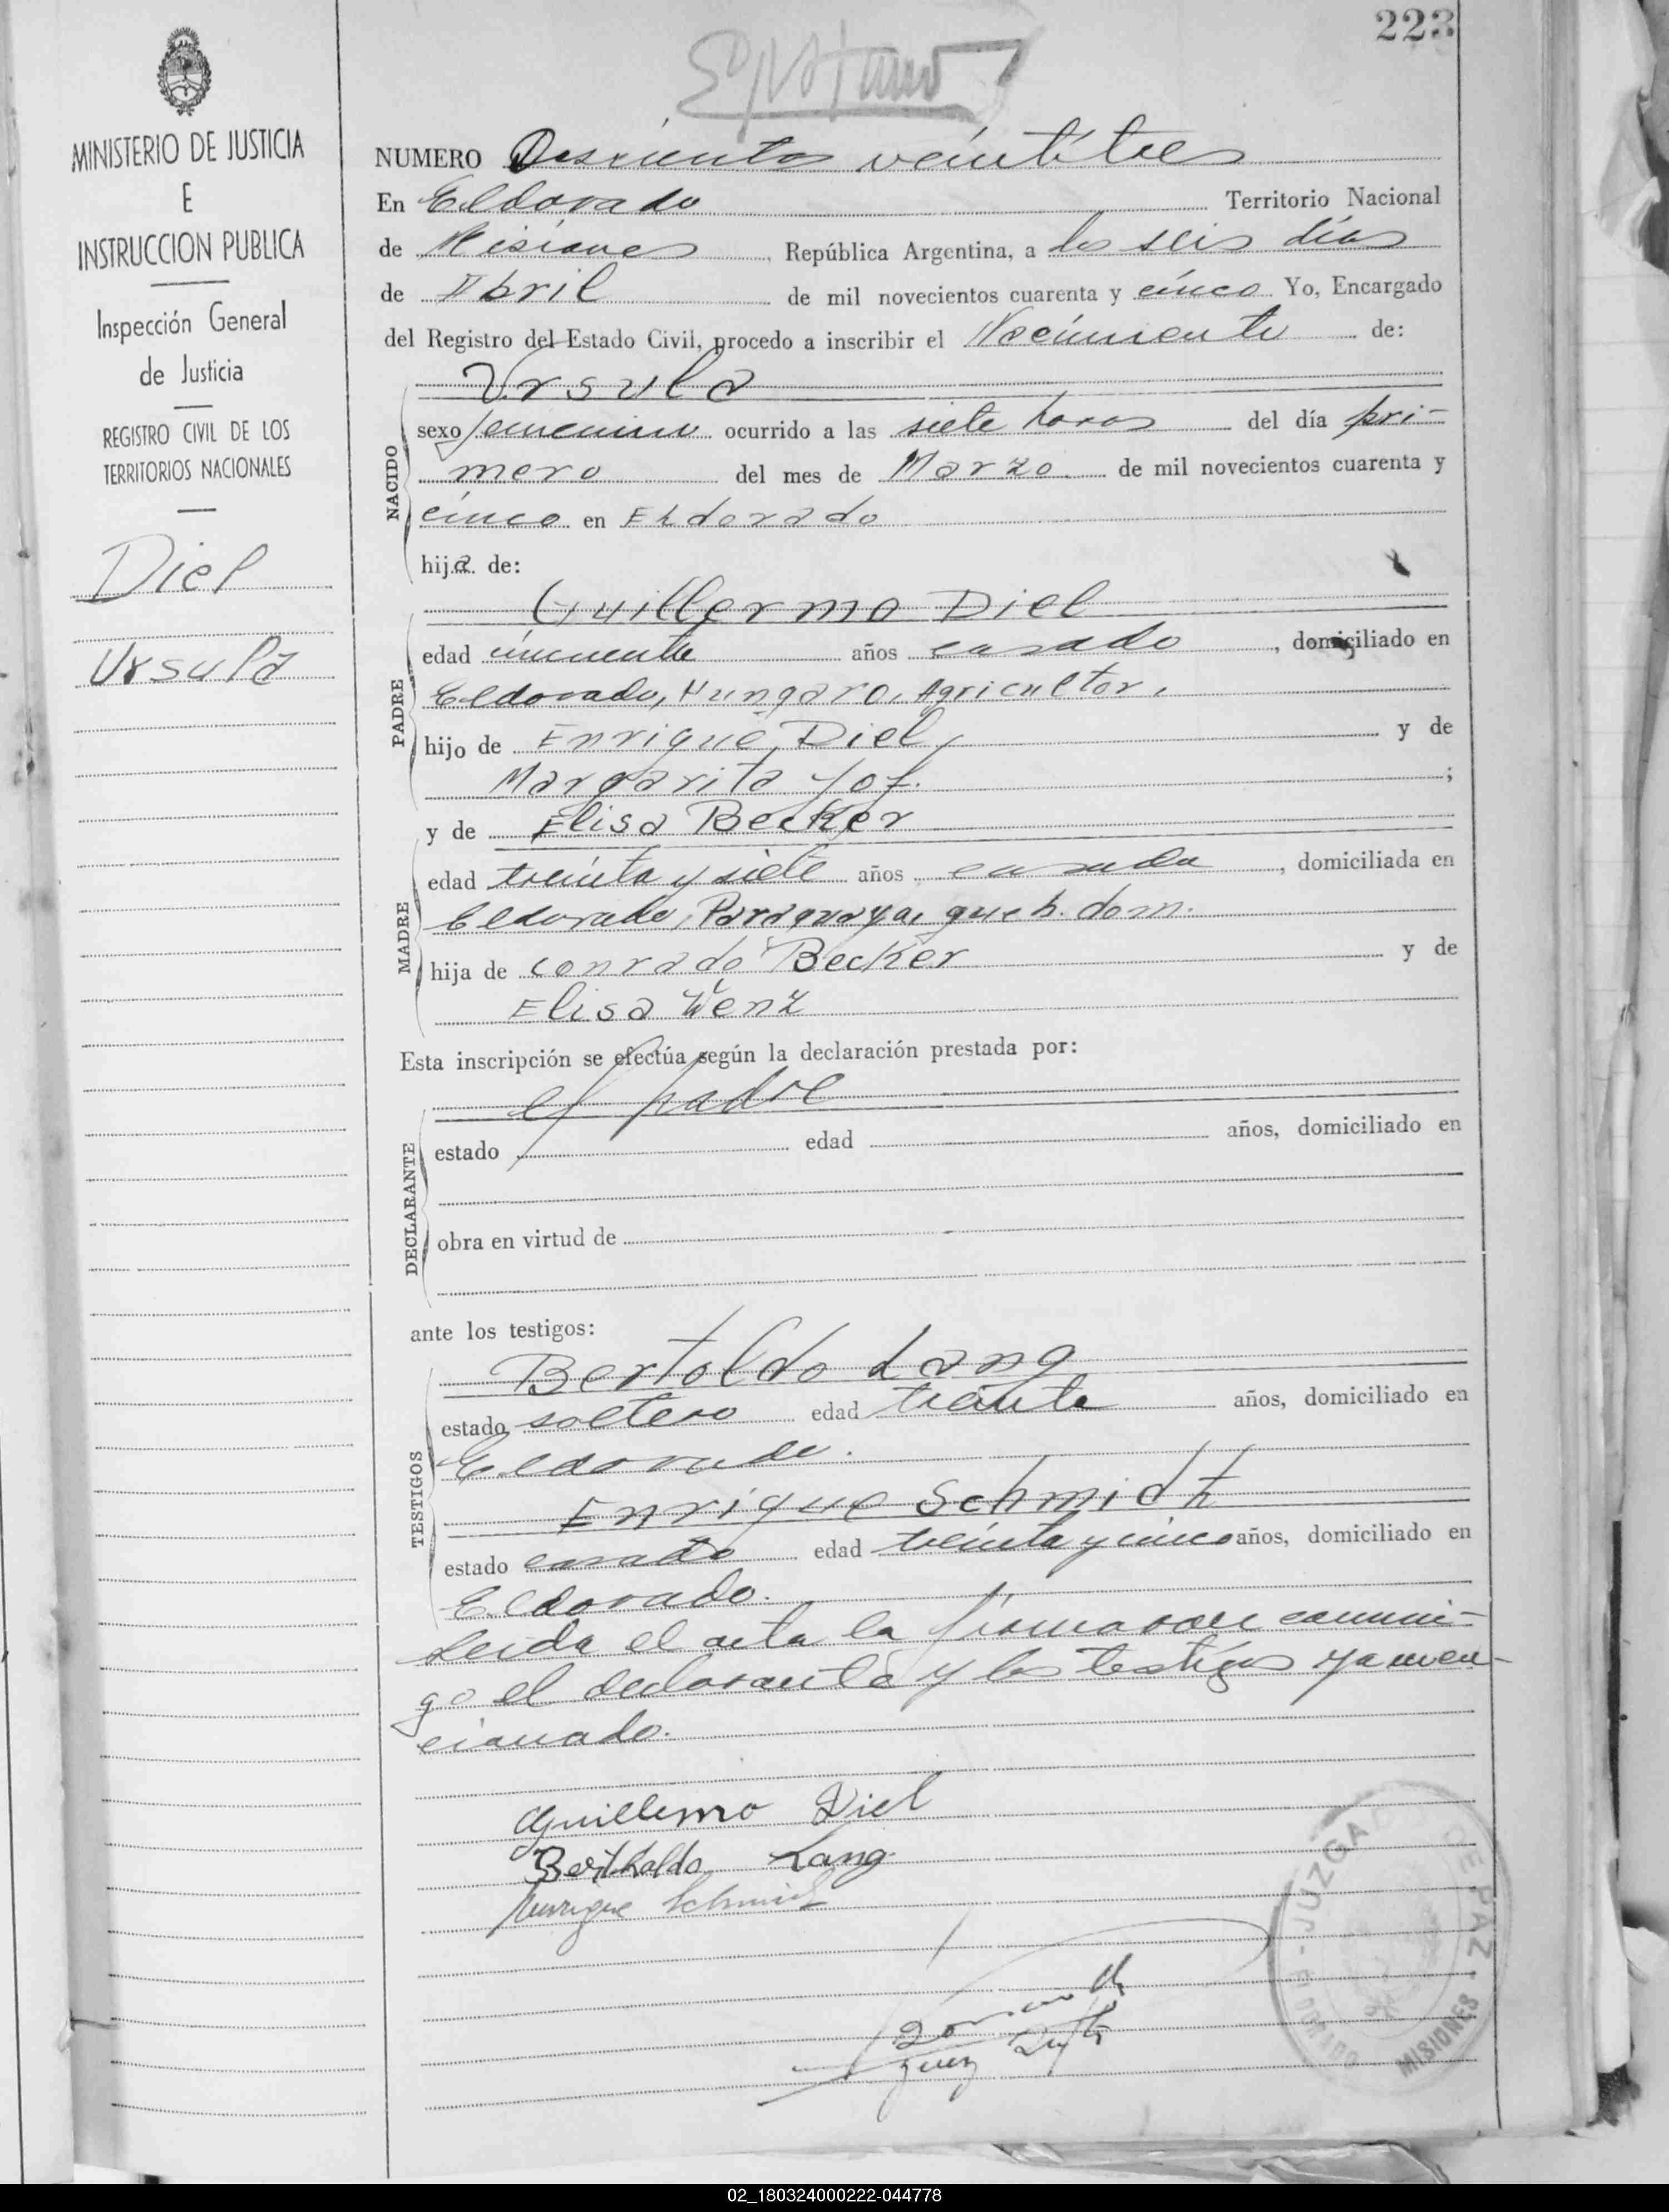 223
NUMERO Doscientos veintitres
En Eldorado Territorio Nacional
de Misiones, República Argentina, a los seis días
de Abril de mil novecientos cuarenta y cinco Yo, Encargado
del Registro del Estado Civil, procedo a inscribir el Nacimiento de:
Ursula
NACIDO
sexo femenino ocurrido a las siete horas del día pri-
mero del mes de Marzo de mil novecientos cuarenta y
cinco en Eldorado
hija de:
Guillermo Diel
PADRE
edad cincuenta años casado, domiciliado en
Eldorado, Hungaro, Agricultor,
hijo de Enrique Diel y de
Margarita Jof.;
y de Elisa Becker
MADRE
edad treinta y siete años casada, domiciliada en
Eldorado, Paraguaya, queh. dom.
hija de Conrado Becker y de
Elisa Wenz
Esta inscripción se efectúa según la declaración prestada por:
el padre
DECLARANTE
estado edad años, domiciliado en
obra en virtud de
ante los testigos:
Bertoldo Lang
TESTIGOS
estado soltero edad treinta años, domiciliado en
Eldorado.
Enrique Schmidt
estado casado edad treinta y cinco años, domiciliado en
Eldorado.
Leída el acta la firmaron conmi-
go el declarante y los testigos ya men-
cionado.
Guillermo Diel
Bertholdo Lang
Enrique Schmidt
Juez
JUZGA DE PAZ - ELDORADO MISIONES
MINISTERIO DE JUSTICIA
E
INSTRUCCION PUBLICA
Inspección General
de Justicia
REGISTRO CIVIL DE LOS
TERRITORIOS NACIONALES
Diel
Ursula
02_180324000222-044778